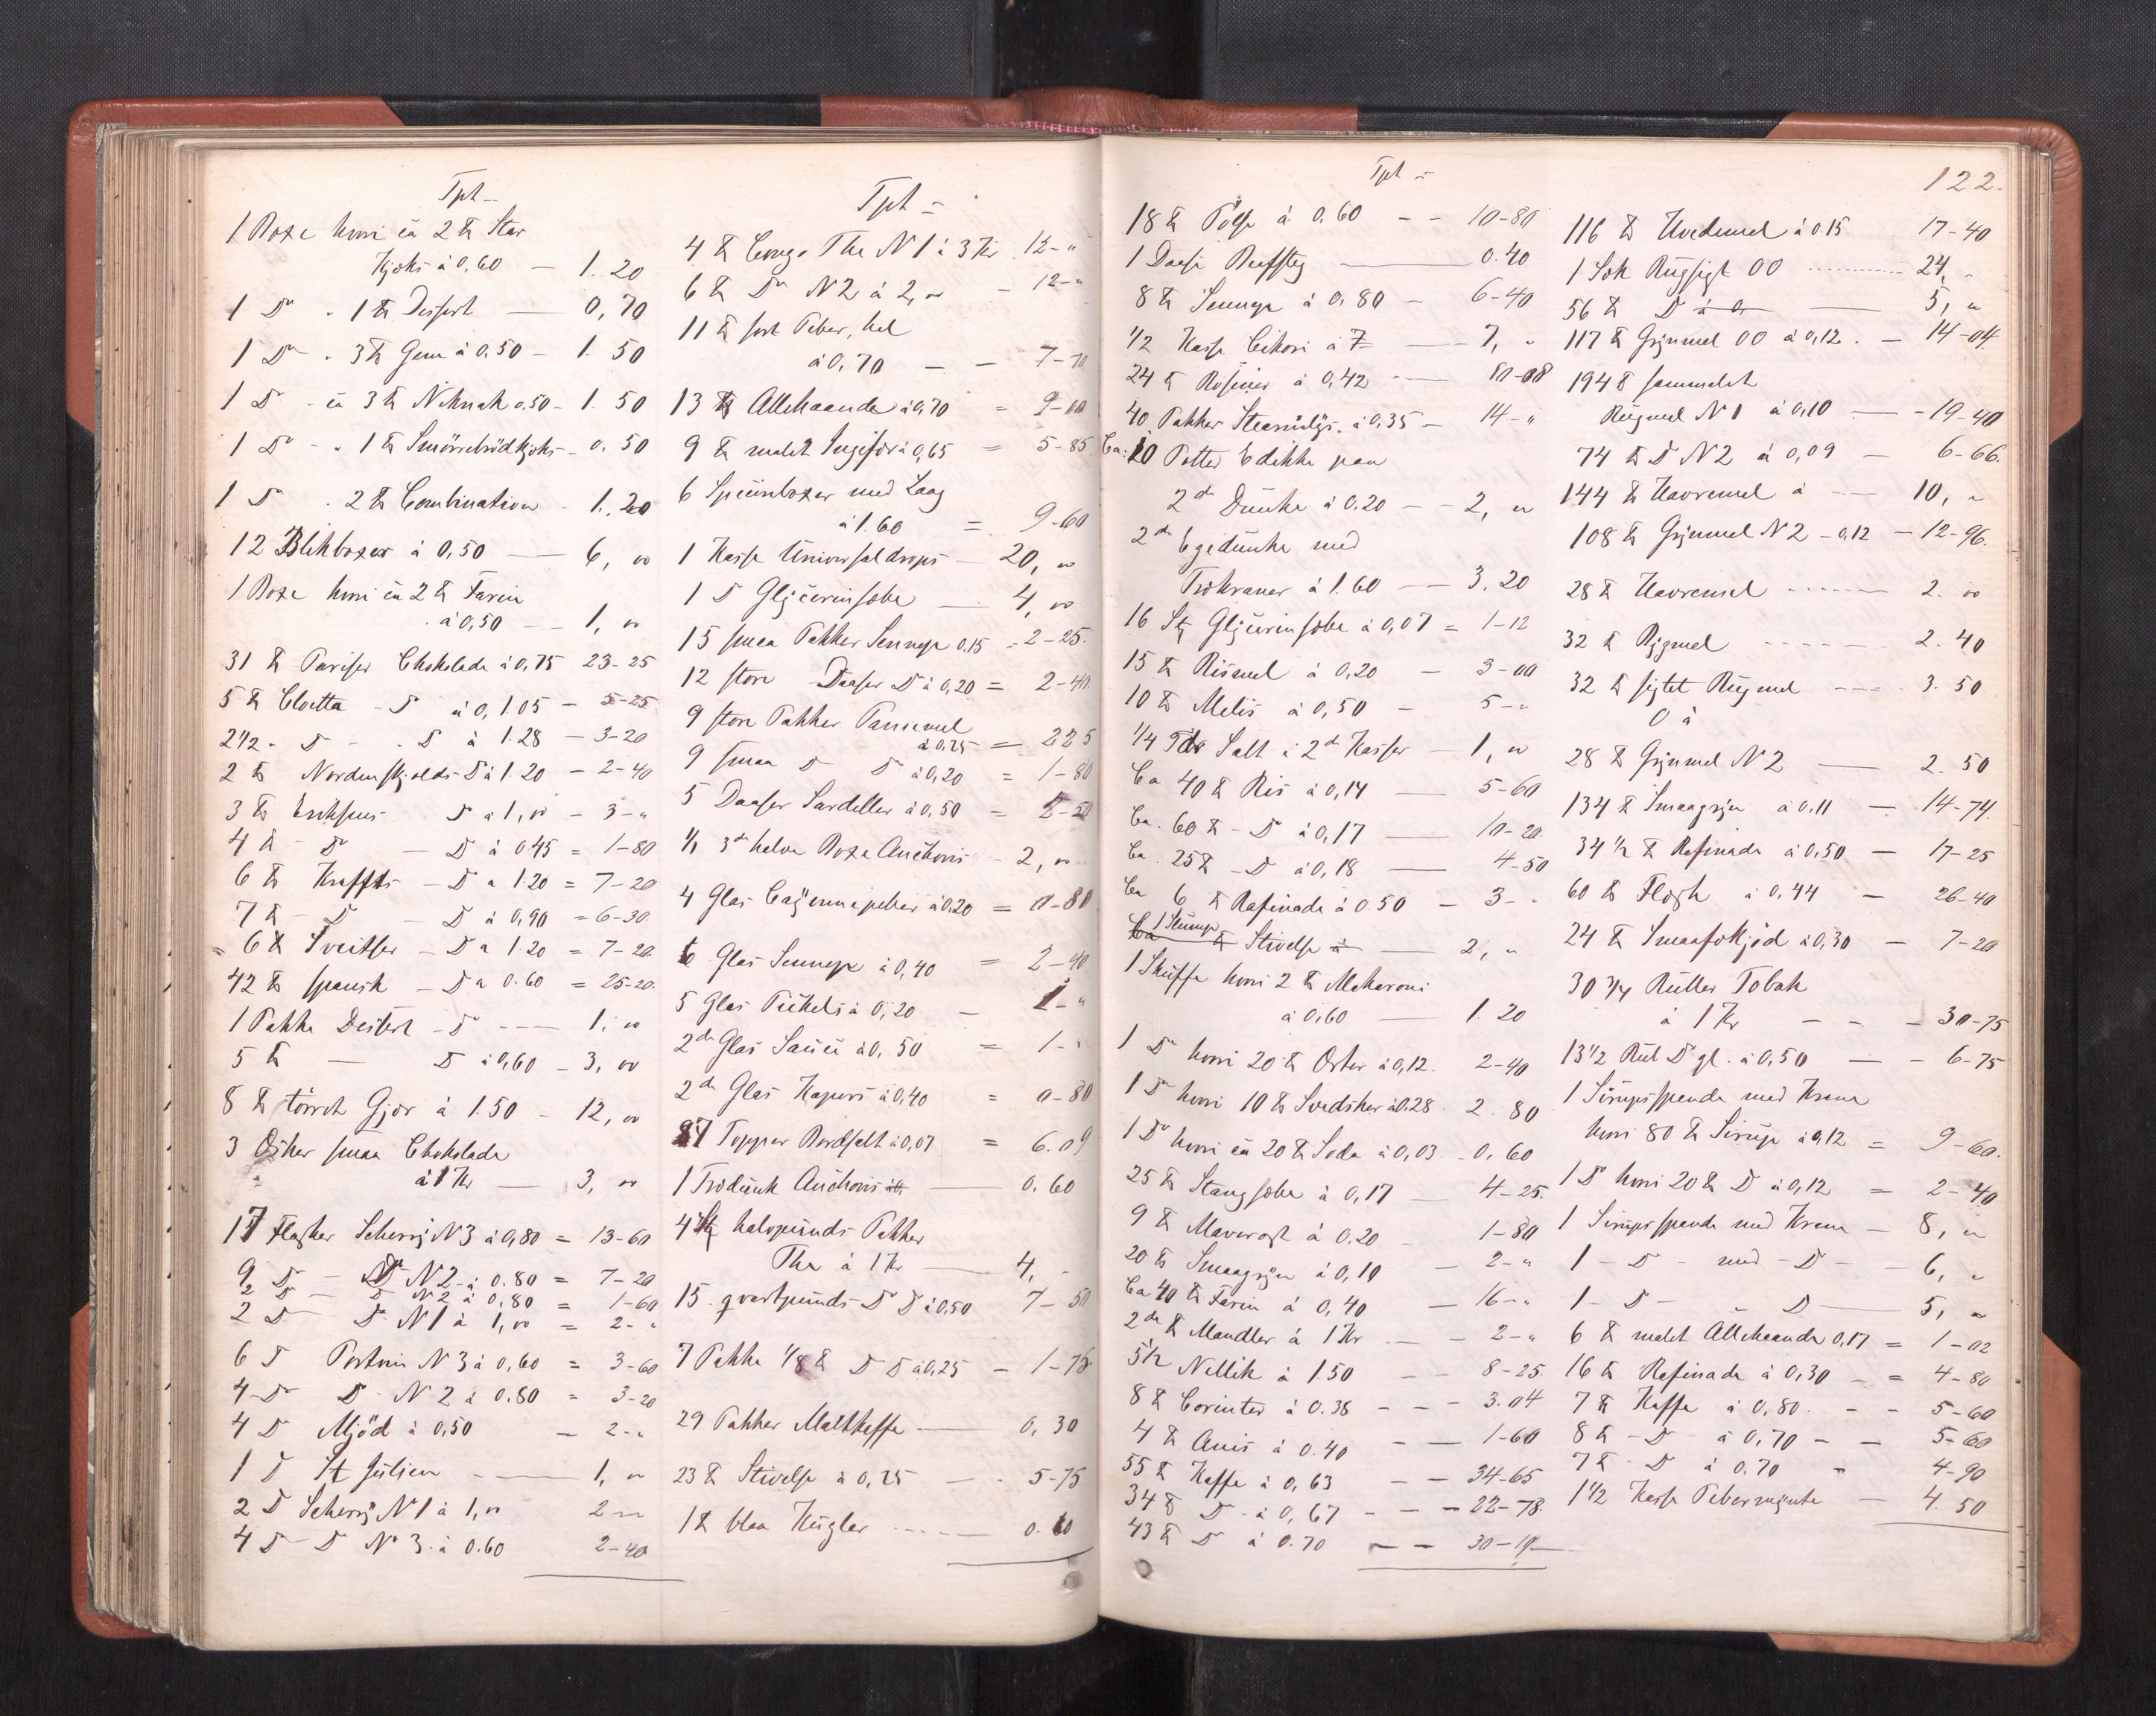 Tpt
1 Boxe hvori en 2 ℔ Star
Kjeks à 0,60 — 1. 20
1 D° - 1 ℔ Dessert — 0,70
1 D° - 3 ℔ Gem à 0.50 - 1. 50
1 D° - en 3 ℔ Niknak 0.50 - 1. 50
1 D° - " 1 ℔ Smörrebrödkjeks - 0. 50
1 D° - 2 ℔ Combination - 1. 20
12 Blikboxer à 0,50 — 6, 00
1 Boxe hvori en 2 ℔ Farin
à 0,50 — 1, 00
31 ℔ Pariser Chokolade à 0,75 23-25
5 ℔ Cloetta - D à 0,1.05 - 5-25
2 1/2 - D - D à 1.28 - 3-20
2 ℔ Nordenskjolds D à 1.20 - 2-40
3 ℔ D à 1,00 - 3-"
4 ℔ - D - D à 0.45 = 1-80
6 ℔ Kraffts - D à 1.20 = 7-20
7 ℔ - D - D à 0,90 = 6-30
6 ℔ Sveitser - D à 1.20 = 7-20
42 ℔ spansk - D à 0.60 = 25-20
1 Pakke Desert - D — 1, 00
5 ℔ — D à 0,60 - 3, 00
8 ℔ törret Gjær à 1.50 - 12, 00
3 Æsker smaa Chokolade
à 1 Kr — 3, 00
17 Flasker Scherry N 3 à 0,80 = 13-60
9 D - D° N 2 à 0.80 = 7-20
2 D - D N 2 à 0,80 = 1-60
2 D D N 1 à 1,00 = 2-"
6 D Portvin N 3 à 0,60 = 3-60
4 D D N 2 à 0.80 = 3-20
4 D Mjød à 0,50 - 2-"
1 D St Julien — 1, 00
2 D Scherry N 1 à 1,00 2-00
4 D D N 3 à 0.60 2-40
Tpt
4 ℔ Congo The N 1 à 3 Kr 12-"
6 ℔ D° N 2 à 2,00 - 12-"
11 ℔ sort Peber, hel
à 0,70 - - 7-70
13 ℔ Allehaande à 0,70 = 9-10
9 ℔ malet Ingefær à 0,65 = 5-85
6 med Laag
à 1.60 = 9-60
1 Kasse Universaldrops — 20, 00
1 D Glycerinsæbe — 4, 00
15 smaa Pakker Sennep 0,15 = 2-25
12 store Daaser D à 0,20 = 2-40
9 store Pakker
à 0.25 = 225
9 smaa D D à 0,20 = 1-80
5 Daaser Sardeller à 0,50 = 2-50
1/1 3de halve Boxe Anchovis - 2, 00
4 Glas Cayennepeber à 0.20 = 0-80
6 Glas Sennep à 0,40 = 2-40
5 Glas Pickels à 0,20 - 1-"
2de Glas Sauce à 0,50 = 1-"
2de Glas Kapers à 0,40 = 0-80
87 Topper Bordsalt à 0,07 = 6.09
1 Trædunk Anchovis — 0. 60
4 St halvpunds Pakker
The à 1 Kr — 4, -
15 qvartpunds D D à 0,50 7-50
7 Pakke 1/8 ℔ D D à 0,25 - 1-75
29 Pakker Maltkaffe — 0, 30
23 ℔ Stivelse à 0,25 - 5-75
1 ℔ blaa Kugler — 0. 60
Tpt
18 ℔ Pølse à 0.60 - - 10-80
1 Daase Beefsteg — 0.40
8 ℔ Sennep à 0,80 - 6-40
1/2 Kasse Cikori à 7 — 7, "
24 ℔ Rosiner à 0,42 — 10-08
40 Pakker Stearinlys. à 0,35 - 14-"
Ca: 10 Potter Edikke paa
2de Dunke à 0.20 - - 2, 00
2de Egedunke med
Trækraner à 1.60 — 3.20
16 St Glycerinsæbe à 0,07 = 1-12
15 ℔ Rismel à 0,20 - 3-00
10 ℔ Melis à 0,50 - 5-"
1/4 Tdr Salt i 2de Kasser - 1, 00
Ca 40 ℔ Ris à 0,14 — 5-60
Ca. 60 ℔ - D à 0,17 — 10-20
Ca. 25 ℔ - D à 0,18 — 4-50
Ca 6 ℔ Rafinade à 0.50 - 3-"
Ca 1 Slump ℔ Stivelse à — 2, "
1 Skuffe hvori 2 ℔ Makaroni
à 0,60 — 1.20
1 D° hvori 20 ℔ Erter à 0,12. 2-40
1 D° hvori 10 ℔ Svedsker à 0.28. 2.80
1 D° hvori en 20 ℔ Soda à 0,03 - 0,60
25 ℔ Stangsæbe à 0,17 — 4-25
9 ℔ à 0.20 - 1-80
20 ℔ Smaagryn à 0,10 - 2-"
Ca 40 ℔ Farin à 0,40 - 16-"
2de ℔ Mandler à 1 Kr - 2-"
5 1/2 Nellik à 1.50 - 8-25
8 ℔ Corinter à 0.38 - - 3.04
4 ℔ Anis à 0.40 - 1-60
55 ℔ Kaffe à 0,63 - - 34-65
34 ℔ D - à 0,67 - - 22-78
43 ℔ D à 0.70 - - 30-10
122.
116 ℔ Hvedemel à 0.15 17-40
1 Sæk Rugsigt 00 — 24, -
56 ℔ D à 0 — 5, "
117 ℔ Grynmel 00 à 0,12. - 14-04
194 ℔ sammalet
Rugmel N 1 à 0,10 — 19-40
74 ℔ D N 2 à 0,09 — 6-66
144 ℔ Havremel à — 10, "
108 ℔ Grynmel N 2 - 0,12 - 12-96
28 ℔ Havremel — 2. 00
32 ℔ Bygmel — 2.40
32 ℔ sigtet Rugmel — 3.50
0 à
28 ℔ Grynmel N 2 — 2.50
134 ℔ Smaagryn à 0.11 - 14-74
34 1/2 ℔ Rafinade à 0,50 — 17-25
60 ℔ Flesk à 0,44 - 26-40
24 ℔ à 0,30 - 7-20
30 3/4 Ruller Tobak
à 1 Kr - - - 30-75
13 1/2 Rul D° gl. à 0,50 — 6-75
1 Sirupsspande med Krane
hvori 80 ℔ Sirup à 0,12 = 9-60
1 D° hvori 20 ℔ D à 0,12 = 2-40
1 Sirupsspande med Krane - 8, 00
1 - D - med - D - 6, "
1 - D - " D — 5, "
6 ℔ malet Allehaande 0,17 = 1-02
16 ℔ Rafinade à 0,30 = 4-80
7 ℔ Kaffe à 0,80 - - 5-60
8 ℔ - D - à 0,70 - - 5-60
7 ℔ - D à 0.70 - 4-90
1 1/2 Kasse Pebermynte - 4.50